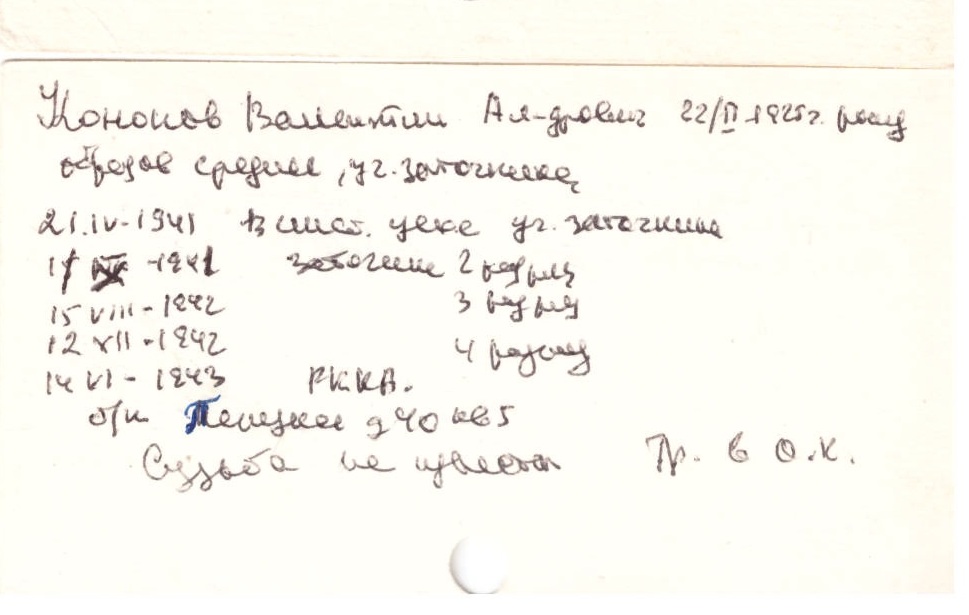 Кононов Валентин Ал-дрович 22/II-1925г. рожд
образов средние, уч. заточника
21.IV-1941 В инст. цехе уч. заточника
-1941 заточник 2 разряд
15 VIII-1942 3 разряд
12 XII-1942 4 разряд
14 VI-1943 РККА.
д 40 кв 5
Судьба не известна Тр. в О.К.